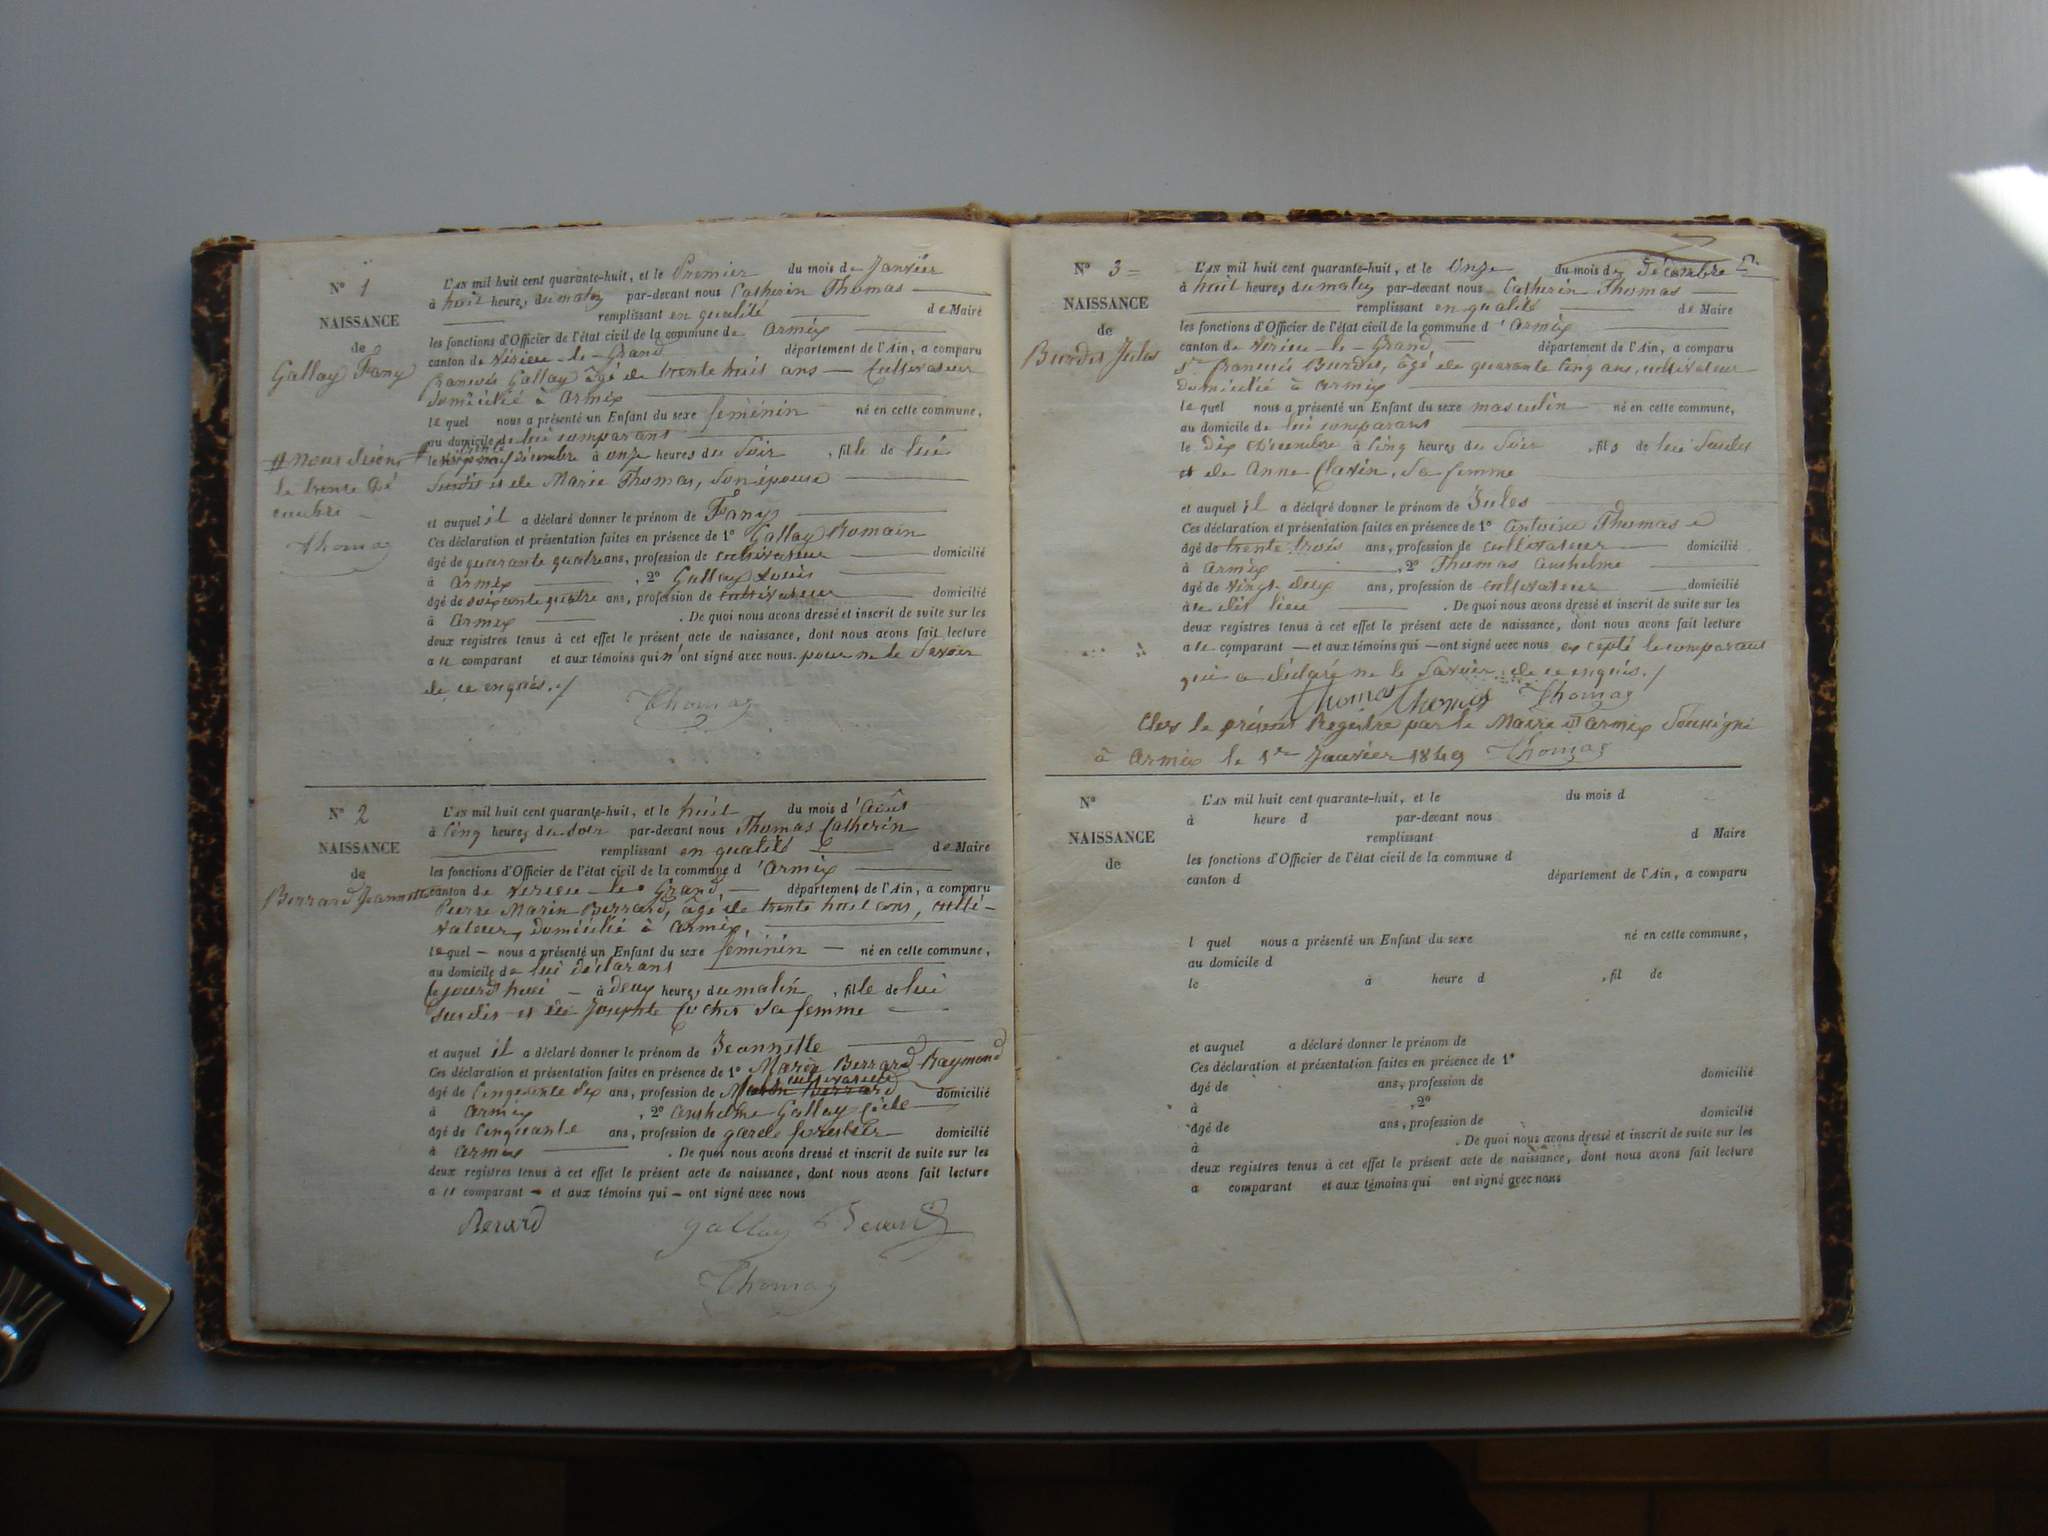 N° 1
NAISSANCE
de
Gallay Fany
# nous disons
le trente Dé
cembre
Thomas
L'AN mil huit cent quarante-huit, et le Premier du mois de Janvier
à huit heures du matin par-devant nous Catherin Thomas
remplissant en qualité de Maire
les fonctions d'Officier de l'état civil de la commune de Armix
canton de Virieu-le-Grand département de l'Ain, a comparu
françois Gallay âgé de trente huit ans Cultivateur
domicilié à Armix
lequel nous a présenté un Enfant du sexe féminin né en cette commune,
au domicile de lui comparant
le décembre à onze heures du Soir, fille de lui
Susdit et de Marie Thomas, son épouse
et auquel il a déclaré donner le prénom de Fany
Ces déclaration et présentation faites en présence de 1° Gallay Romain
âgé de quarante quatre ans, profession de cultivateur domicilié
à Armix, 2° Gallay Louis
âgé de soixante quatre ans, profession de cultivateur domicilié
à Armix. De quoi nous avons dressé et inscrit de suite sur les
deux registres tenus à cet effet le présent acte de naissance, dont nous avons fait lecture
au comparant et aux témoins qui n'ont signé avec nous. pour ne le Savoir
de ce enquis./
Thomas
N° 2
NAISSANCE
de
Berrard Jeannette
L'AN mil huit cent quarante-huit, et le huit du mois d'Août
à Cinq heures du soir par-devant nous Thomas Catherin
remplissant en qualité de Maire
les fonctions d'Officier de l'état civil de la commune d'Armix
canton de Virieu-le-Grand département de l'Ain, a comparu
Pierre Marin Berrard, âgé de trente huit ans, culti-
vateur, domicilié à Armix,
lequel nous a présenté un Enfant du sexe féminin né en cette commune,
au domicile de lui déclarant
le jourd'hui à deux heures du matin, fille de lui
Susdit et de Josephte sa femme
et auquel il a déclaré donner le prénom de Jeannette
Ces déclaration et présentation faites en présence de 1° Marin Berrard Raymond
cultivateur
âgé de Cinquante dix ans, profession de Marin Berrard domicilié
à Armix, 2° Anshelme Gallay
âgé de Cinquante ans, profession de garde forestier domicilié
à Armix. De quoi nous avons dressé et inscrit de suite sur les
deux registres tenus à cet effet le présent acte de naissance, dont nous avons fait lecture
au comparant et aux témoins qui ont signé avec nous
Berard Gallay
Thomas
N° 3
NAISSANCE
de
Burdet Jules
L'AN mil huit cent quarante-huit, et le Onze du mois de Décembre
à huit heures du matin par-devant nous Catherin Thomas
remplissant en qualité de Maire
les fonctions d'Officier de l'état civil de la commune d'Armix
canton de Virieu-le-Grand département de l'Ain, a comparu
Sr. François Burdet, âgé de quarante cinq ans, cultivateur
domicilié à Armix
lequel nous a présenté un Enfant du sexe masculin né en cette commune,
au domicile de lui comparant
le dix Décembre à Cinq heures du Soir, fils de lui Susdit
et de Anne Clavin, Sa femme
et auquel il a déclaré donner le prénom de Jules
Ces déclaration et présentation faites en présence de 1° Antoine Thomas
âgé de trente trois ans, profession de cultivateur domicilié
à Armix, 2° Thomas Anshelme
âgé de Vingt-deux ans, profession de cultivateur domicilié
à le dit lieu. De quoi nous avons dressé et inscrit de suite sur les
deux registres tenus à cet effet le présent acte de naissance, dont nous avons fait lecture
au comparant et aux témoins qui ont signé avec nous excepté le comparant
qui a déclaré ne le Savoir de ce enquis./
Thomas Thomas Thomas
Clos le présent Registre par le Maire d'Armix Soussigné
à Armix le 1er Janvier 1849 Thomas
N°
NAISSANCE
de
L'AN mil huit cent quarante-huit, et le du mois d
à heure d par-devant nous
remplissant d Maire
les fonctions d'Officier de l'état civil de la commune d
canton d département de l'Ain, a comparu
l quel nous a présenté un Enfant du sexe né en cette commune,
au domicile d
le à heure d, fil de
et auquel a déclaré donner le prénom de
Ces déclaration et présentation faites en présence de 1°
âgé de ans, profession de domicilié
à, 2°
âgé de ans, profession de domicilié
à. De quoi nous avons dressé et inscrit de suite sur les
deux registres tenus à cet effet le présent acte de naissance, dont nous avons fait lecture
a comparant et aux témoins qui ont signé avec nous